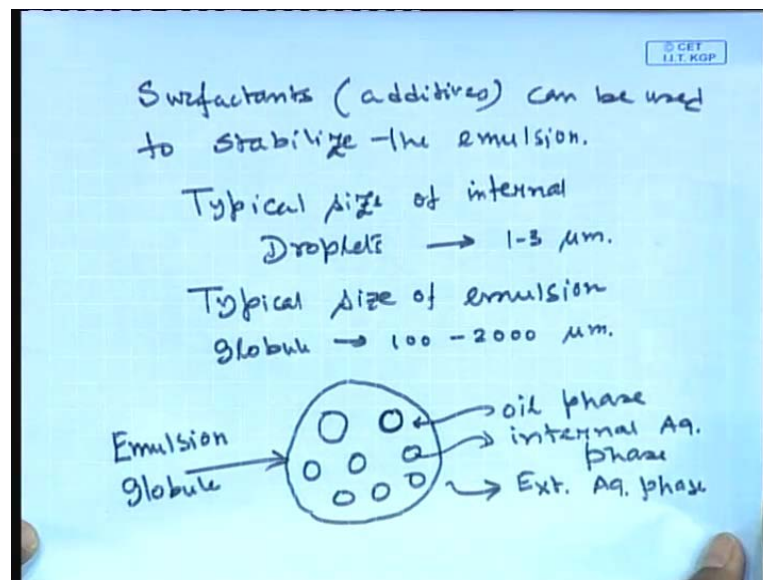 © CET
I.I.T. KGP
Surfactants (additives) can be used
to stabilize the emulsion.
Typical size of internal
Droplets → 1-3 μm.
Typical size of emulsion
globule → 100 - 2000 μm.
Emulsion
globule
oil phase
internal Aq.
phase
Ext. Aq. phase